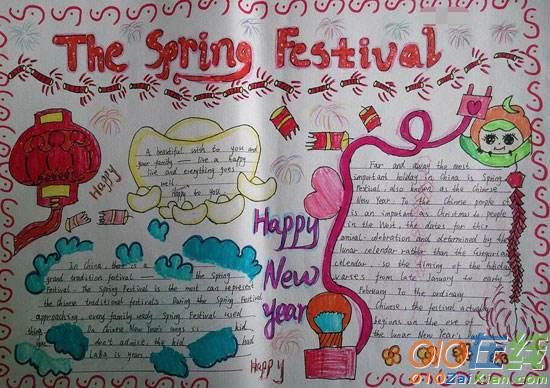 The Spring Festival
A beautiful wish to you and
your family — live a happy
list and everything goes
well.
Happy to you
Happy
Happy
New
year
Happy
In China, that is a
grand traditional festival. — the Spring
Festival. The Spring Festival is the most can represent
the Chinese traditional festivals. During the Spring Festival
approaching every family ready Spring Festival used
thing. On Chinese New Year's is kid
don't admire. the kid had
LaBa is years
Far and away the most
important holiday in China is Spring
Festival, also known as the Chinese
New Year. To the Chinese people it
is as important as Christmas to people
in the West. the dates for this
annual celebration and determined by the
lunar calendar rather than the Gregorian
calendar, so the timing of the holiday
varies from late January to early
February. To the ordinary
Chinese, the festival actually
begins on the eve of
the lunar New Year's
qq在线
qqzaixian.com